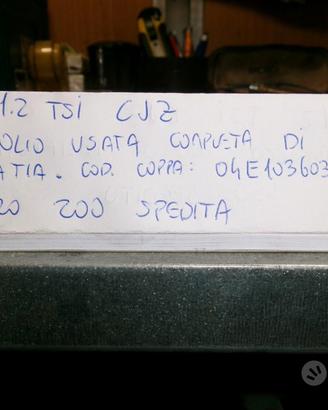 1.2 TSi CJZ
OLIO USATA COMPLETA DI
ATIA. COD. COPPA: 04E103603
20 200 SPEDITA